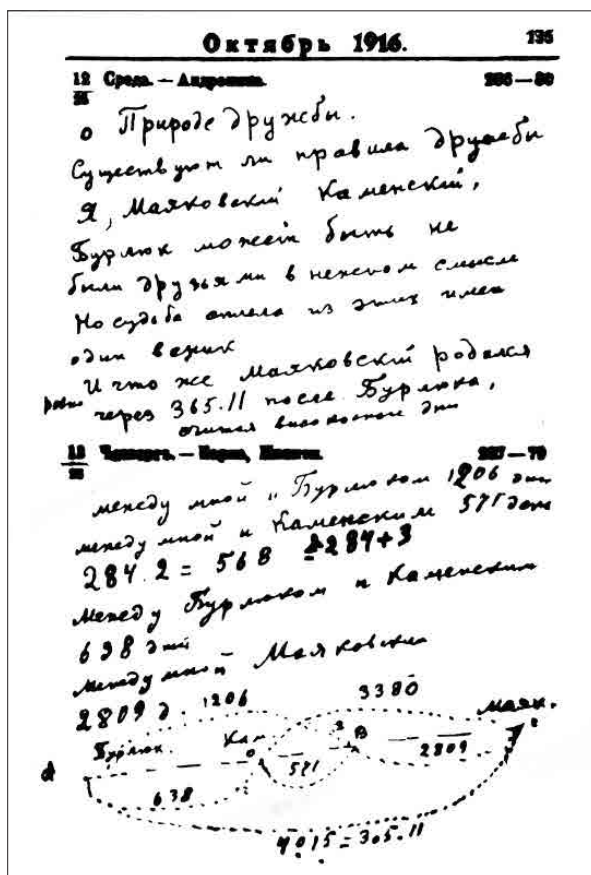 Октябрь 1916.
135
12 Среда. — Андроника. 286—80
25
о Природе дружбы.
Существуют ли правила дружбы
Я, Маяковскій Каменскій,
Бурлюк может быть не
были друзьями в нежном смысле
Но судьба сплела из этих имен
один веник
И что же Маяковскій родался
ровно через 365.11 после Бурлюка,
считая високосные дни
13 Четвергъ. — 287—79
26
между мной и Бурлюком 1206 дни
между мной и Каменским 571 день
284.2 = 568 284+3
Между Бурлюком и Каменским
638 дней
между мной Маяковским
2809 д.
1206
3380
Маяк.
Бурлюк.
Кам.
В
571
2809
638
4015 = 365.11